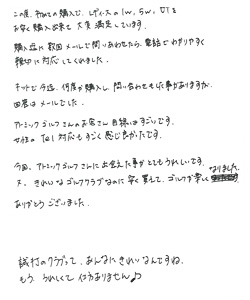 この度、初めての購入で、レディースの1W、5W、UTを
お安く購入出来て大変満足しています。
購入迄に数回メールで問いあわせたら、電話でわかりやすく
親切に対応してくれました。
ネットで今迄、何度か購入し、問い合わせもした事がありますが、
回答はメールでした。
アトミックゴルフさんのお客さん目線はすごいです。
女性のTel対応もすごく感じ良かったです。
今回、アトミックゴルフさんに出会えた事がとてもうれしいです。
又、きれいなゴルフクラブなのに安く買えて、ゴルフが楽しくなりました。
ありがとうございました。
試打のクラブって、あんなにきれいなんですね。
もう、うれしくて 仕方ありません♪